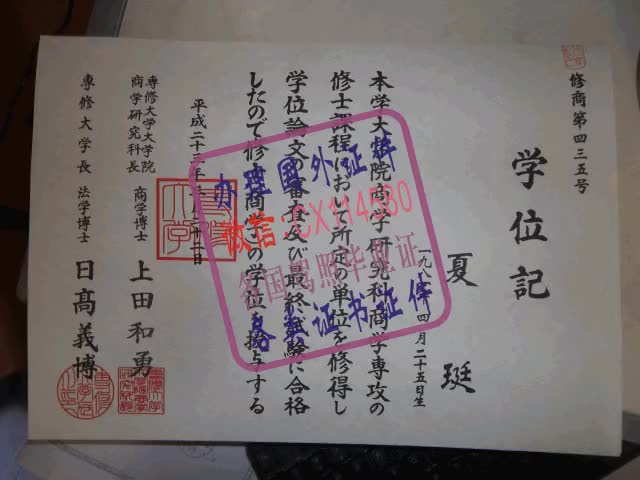 修商第四三五号
学位記
夏 珽
一九八 四月二十五日生
本学大学院商学研究科商学専攻の
修士課程において所定の単位を修得し
学位論文の審査及び最終試験に合格
したので修士(商学)の学位を授与する
平成二十三年 月二十二日
専修大学大学院
商学研究科長 商学博士 上田和勇
専修大学長 法学博士 日髙義博
办理國外证件
微信:CX114580
各国驾照毕业证
各类证书证件